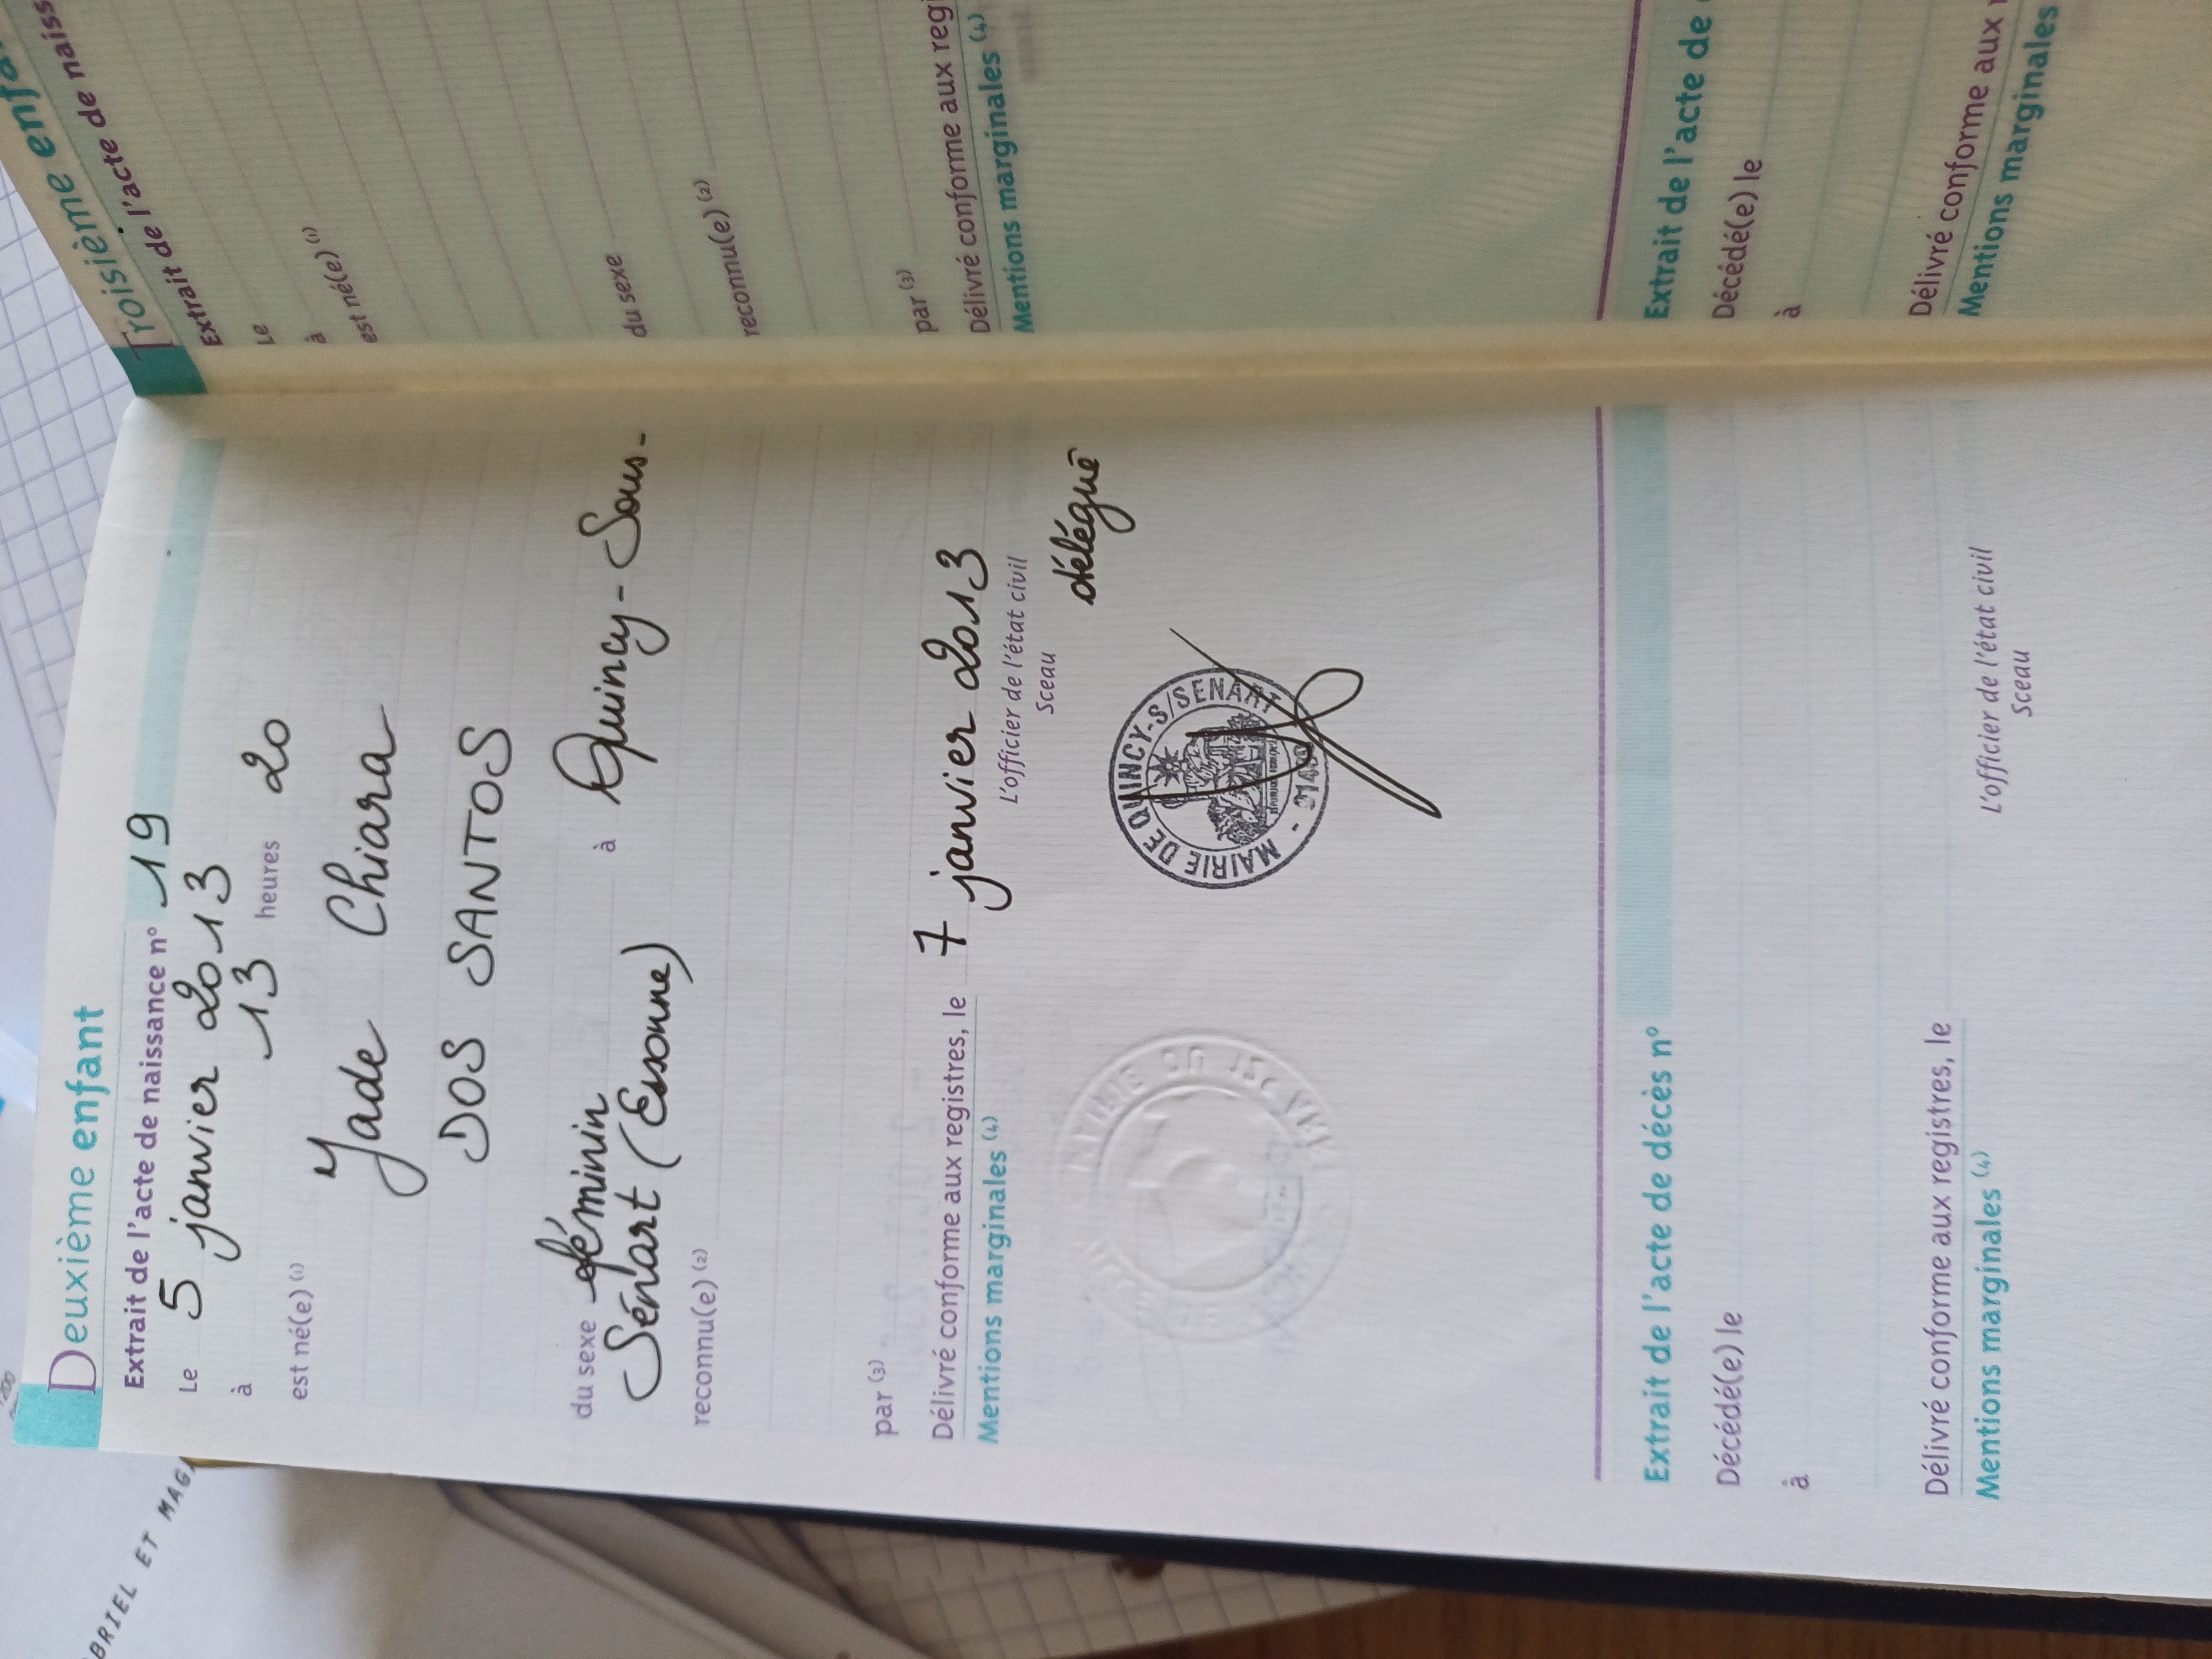 Deuxième enfant
Extrait de l'acte de naissance n° 19
Le 5 janvier 2013
à 13 heures 20
est né(e) (1)
Jade Chiara
DOS SANTOS
du sexe féminin à Quincy-Sous-
Sénart (Essonne)
reconnu(e) (2)
par (3)
Délivré conforme aux registres, le 7 janvier 2013
Mentions marginales (4)
L'officier de l'état civil
Sceau
délégué
MAIRIE DE QUINCY-S/SENART
Extrait de l'acte de décès n°
Décédé(e) le
à
Délivré conforme aux registres, le
Mentions marginales (4)
L'officier de l'état civil
Sceau
Troisième enfa
Extrait de l'acte de naiss
Le
à
est né(e) (1)
du sexe
reconnu(e) (2)
par (3)
Délivré conforme aux regi
Mentions marginales (4)
Extrait de l'acte de
Décédé(e) le
à
Délivré conforme aux
Mentions marginales
BRIEL ET MAG